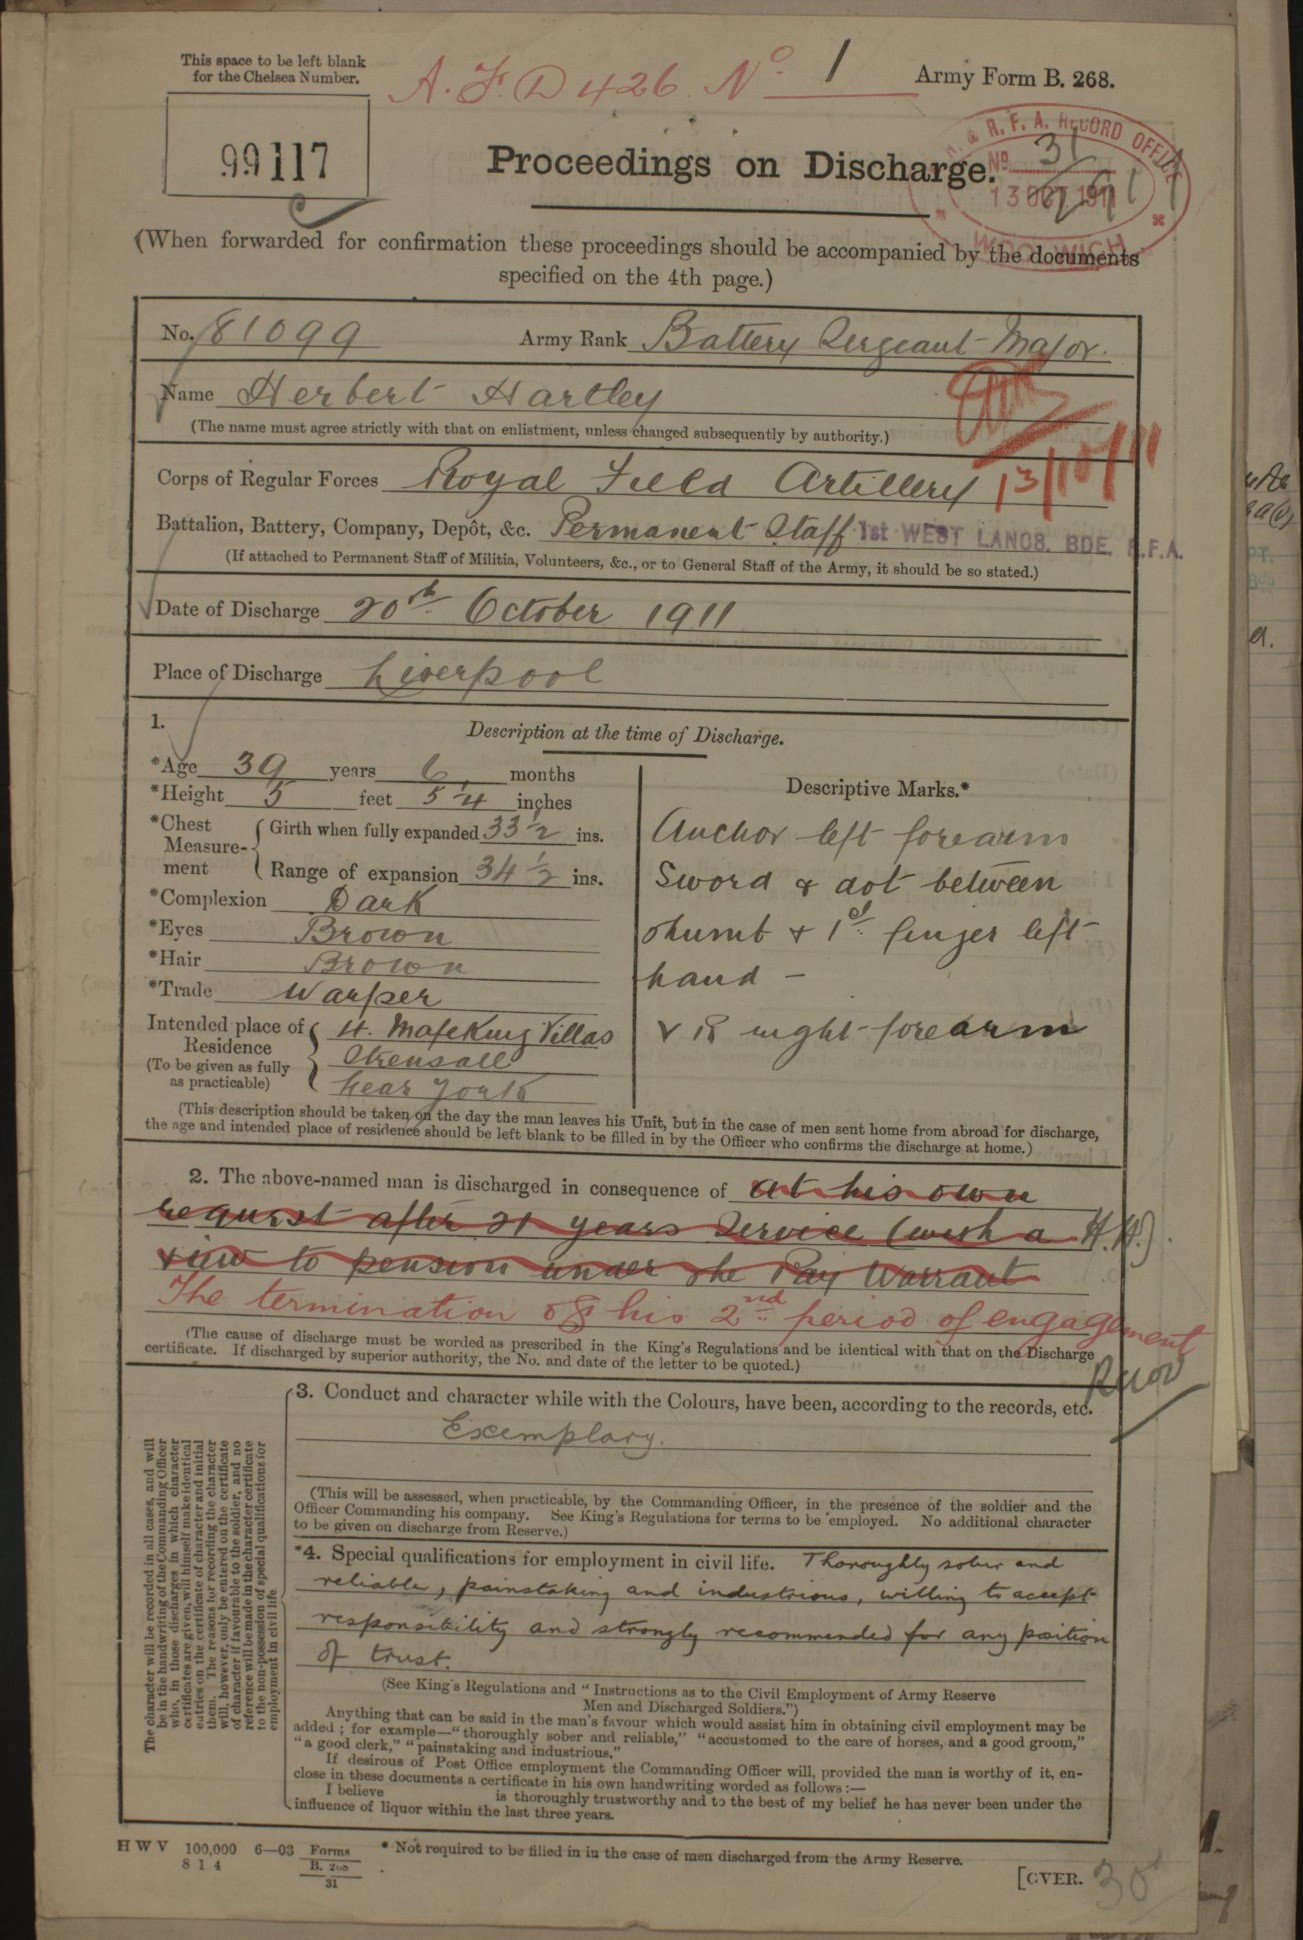 This space to be left blank
for the Chelsea Number.
A.F. D 426 No. 1
Army Form B. 268.
99117
R. F. A. RECORD OFFICE
No. 31
13 OCT. 1911
WOOLWICH
Proceedings on Discharge.
(When forwarded for confirmation these proceedings should be accompanied by the documents
specified on the 4th page.)
No. 81099 Army Rank Battery Sergeant-Major.
Name Herbert Hartley
(The name must agree strictly with that on enlistment, unless changed subsequently by authority.)
13/10/11
Corps of Regular Forces Royal Field Artillery
Battalion, Battery, Company, Depôt, &c. Permanent Staff 1st WEST LANCS. BDE. R.F.A.
(If attached to Permanent Staff of Militia, Volunteers, &c., or to General Staff of the Army, it should be so stated.)
Date of Discharge 20th October 1911
Place of Discharge Liverpool
1. Description at the time of Discharge.
*Age 39 years 6 months
*Height 5 feet 5 1/4 inches
*Chest Measure-ment
Girth when fully expanded 33 1/2 ins.
Range of expansion 34 1/2 ins.
*Complexion Dark
*Eyes Brown
*Hair Brown
*Trade Warper
Intended place of Residence
(To be given as fully as practicable)
4. Mafeking Villas
Strensall
near York
Descriptive Marks.*
Anchor left forearm
Sword & dot between
thumb & 1st finger left
hand –
right forearm
(This description should be taken on the day the man leaves his Unit, but in the case of men sent home from abroad for discharge,
the age and intended place of residence should be left blank to be filled in by the Officer who confirms the discharge at home.)
2. The above-named man is discharged in consequence of at his own
request after 21 years Service (with a H.H.)
view to pension under the Pay Warrant
The termination of his 2nd period of engagement
(The cause of discharge must be worded as prescribed in the King's Regulations and be identical with that on the Discharge
certificate. If discharged by superior authority, the No. and date of the letter to be quoted.)
3. Conduct and character while with the Colours, have been, according to the records, etc.
Exemplary.
(This will be assessed, when practicable, by the Commanding Officer, in the presence of the soldier and the
Officer Commanding his company. See King's Regulations for terms to be employed. No additional character
to be given on discharge from Reserve.)
*4. Special qualifications for employment in civil life. Thoroughly sober and
reliable, painstaking and industrious, willing to accept
responsibility and strongly recommended for any position
of trust.
(See King's Regulations and "Instructions as to the Civil Employment of Army Reserve
Men and Discharged Soldiers.")
Anything that can be said in the man's favour which would assist him in obtaining civil employment may be
added; for example—"thoroughly sober and reliable," "accustomed to the care of horses, and a good groom,"
"a good clerk," "painstaking and industrious."
If desirous of Post Office employment the Commanding Officer will, provided the man is worthy of it, en-
close in these documents a certificate in his own handwriting worded as follows:—
I believe is thoroughly trustworthy and to the best of my belief he has never been under the
influence of liquor within the last three years.
The character will be recorded in all cases, and will
be in the handwriting of the Commanding Officer
who, in those discharges in which character
certificates are given, will himself make identical
entries on the certificate of character and initial
them. The reasons for recording the character
will, however, only be entered on the certificate
of character if favourable to the soldier, and no
reference will be made in the character certificate
to the non-possession of special qualifications for
employment in civil life
H W V 100,000 6—03 Forms
8 1 4 B. 268
31
* Not required to be filled in in the case of men discharged from the Army Reserve.
[OVER.
30